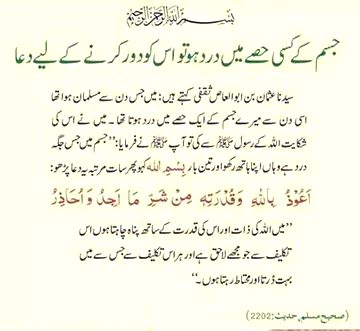 بسم الله الرحمن الرحیم
جسم کے کسی حصے میں درد ہو تو اس کو دور کرنے کے لیے دعا
سیدنا عثمان بن ابو العاص ثقفی کہتے ہیں: میں جس دن سے مسلمان ہوا تھا
اسی دن سے میرے جسم کے ایک حصے میں درد ہوتا تھا۔ میں نے اس کی
شکایت اللہ کے رسول ﷺ سے کی تو آپ ﷺ نے فرمایا: ”جسم میں جس جگہ
درد ہے وہاں اپنا ہاتھ رکھو اور تین بار بِسْمِ اللہ کہو پھر سات مرتبہ یہ دعا پڑھو:
اَعُوْذُ بِاللّٰهِ وَقُدْرَتِهٖ مِنْ شَرِّ مَا اَجِدُ وَاُحَاذِرُ
”میں اللہ کی ذات اور اس کی قدرت کے ساتھ پناہ چاہتا ہوں اس
تکلیف سے جو مجھے لاحق ہے اور ہر اس تکلیف سے جس سے میں
بہت ڈرتا اور محتاط رہتا ہوں۔“
(صحیح مسلم، حدیث: 2202)